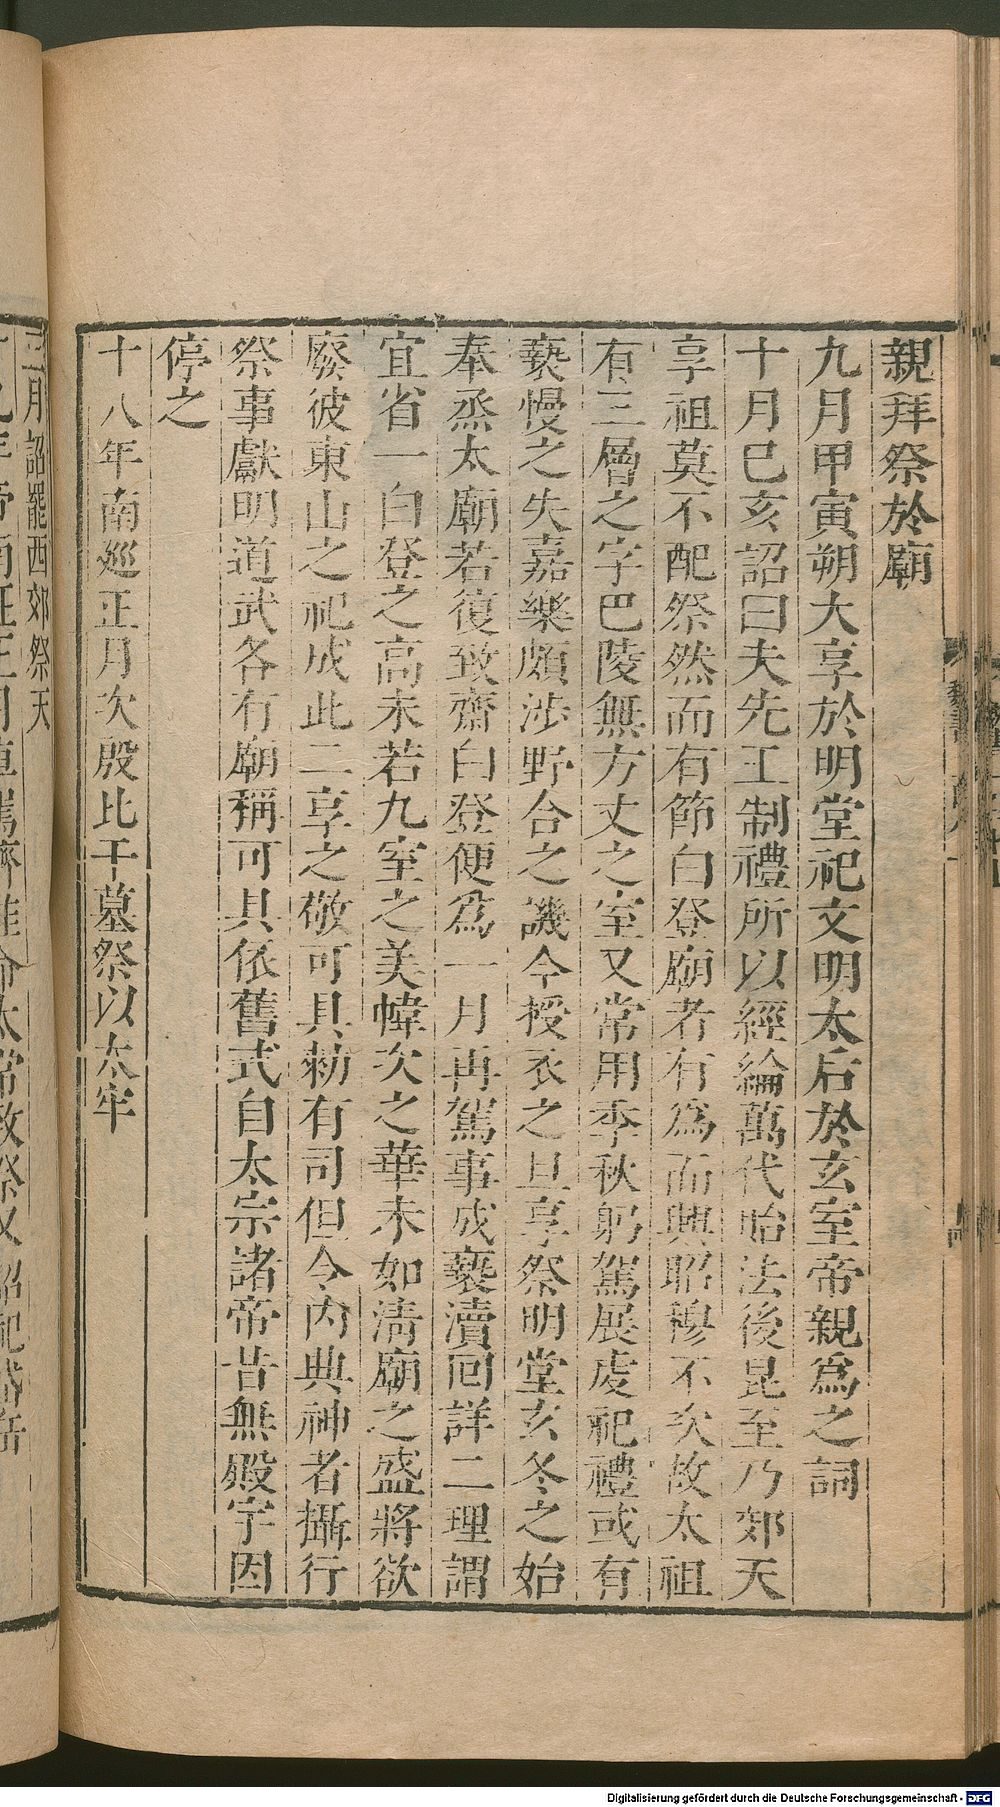 親拜祭於廟
九月甲寅朔大享於明堂祀文明太后於玄室帝親為之詞
十月巳亥詔曰夫先王制禮所以經綸萬代貽法後昆至乃郊天
享祖莫不配祭然而有節白登廟者有為而興昭穆不次故太祖
有三層之宇巴陵無方丈之室又常用季秋躬駕展虔祀禮或有
褻慢之失嘉樂頗涉野合之譏今授衣之旦享祭明堂玄冬之始
奉烝太廟若復致齋白登便為一月再駕事成褻瀆回詳二理謂
宜省一白登之高未若九室之美幃次之華未如清廟之盛將欲
廢彼東山之祀成此二享之敬可具勑有司但令內典神者攝行
祭事獻明道武各有廟稱可具依舊式自太宗諸帝昔無殿宇因
停之
十八年南巡正月次殷比干墓祭以太牢
三月詔罷西郊祭天
Digitalisierung gefördert durch die Deutsche Forschungsgemeinschaft - DFG